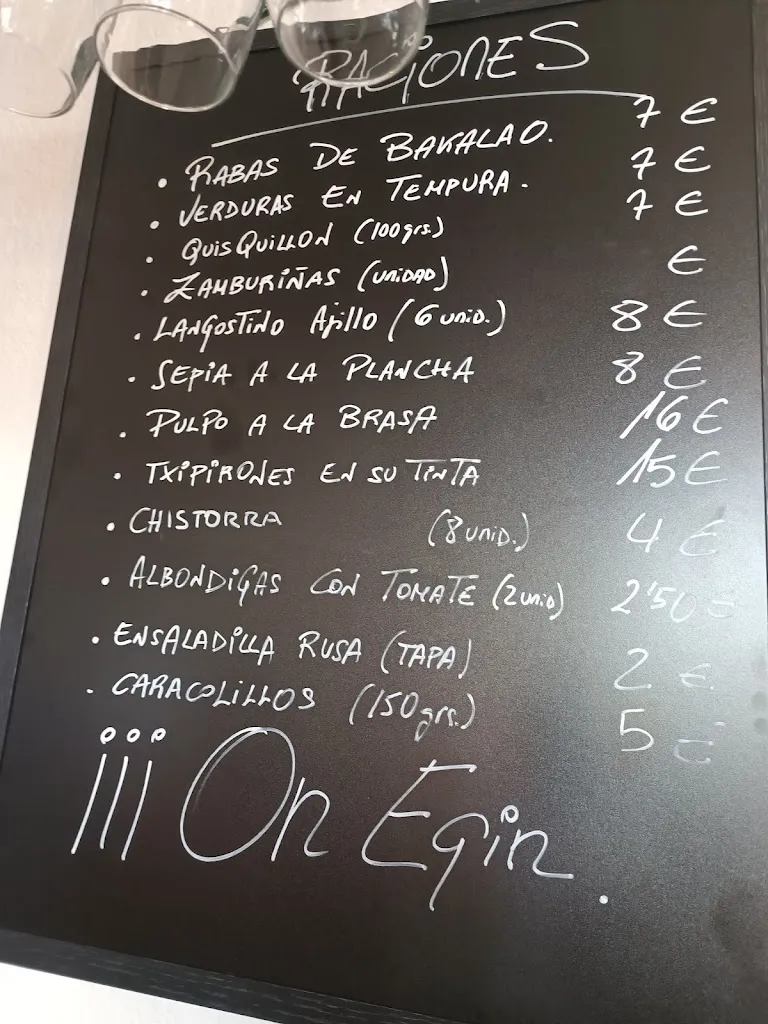 RACIONES
• RABAS DE BAKALAO. 7 €
• VERDURAS EN TEMPURA. 7 €
• QUISQUILLON (100grs.) 7 €
• ZAMBURIÑAS (UNIDAD) €
• LANGOSTINO AJILLO (6 UNID.) 8 €
• SEPIA A LA PLANCHA 8 €
• PULPO A LA BRASA 16 €
• TXIPIRONES EN SU TINTA 15 €
• CHISTORRA (8 UNID.) 4 €
• ALBONDIGAS CON TOMATE (2 UNID) 2'50 €
• ENSALADILLA RUSA (TAPA) 2 €.
• CARACOLILLOS (150grs.) 5 €
¡¡¡ On Egin.